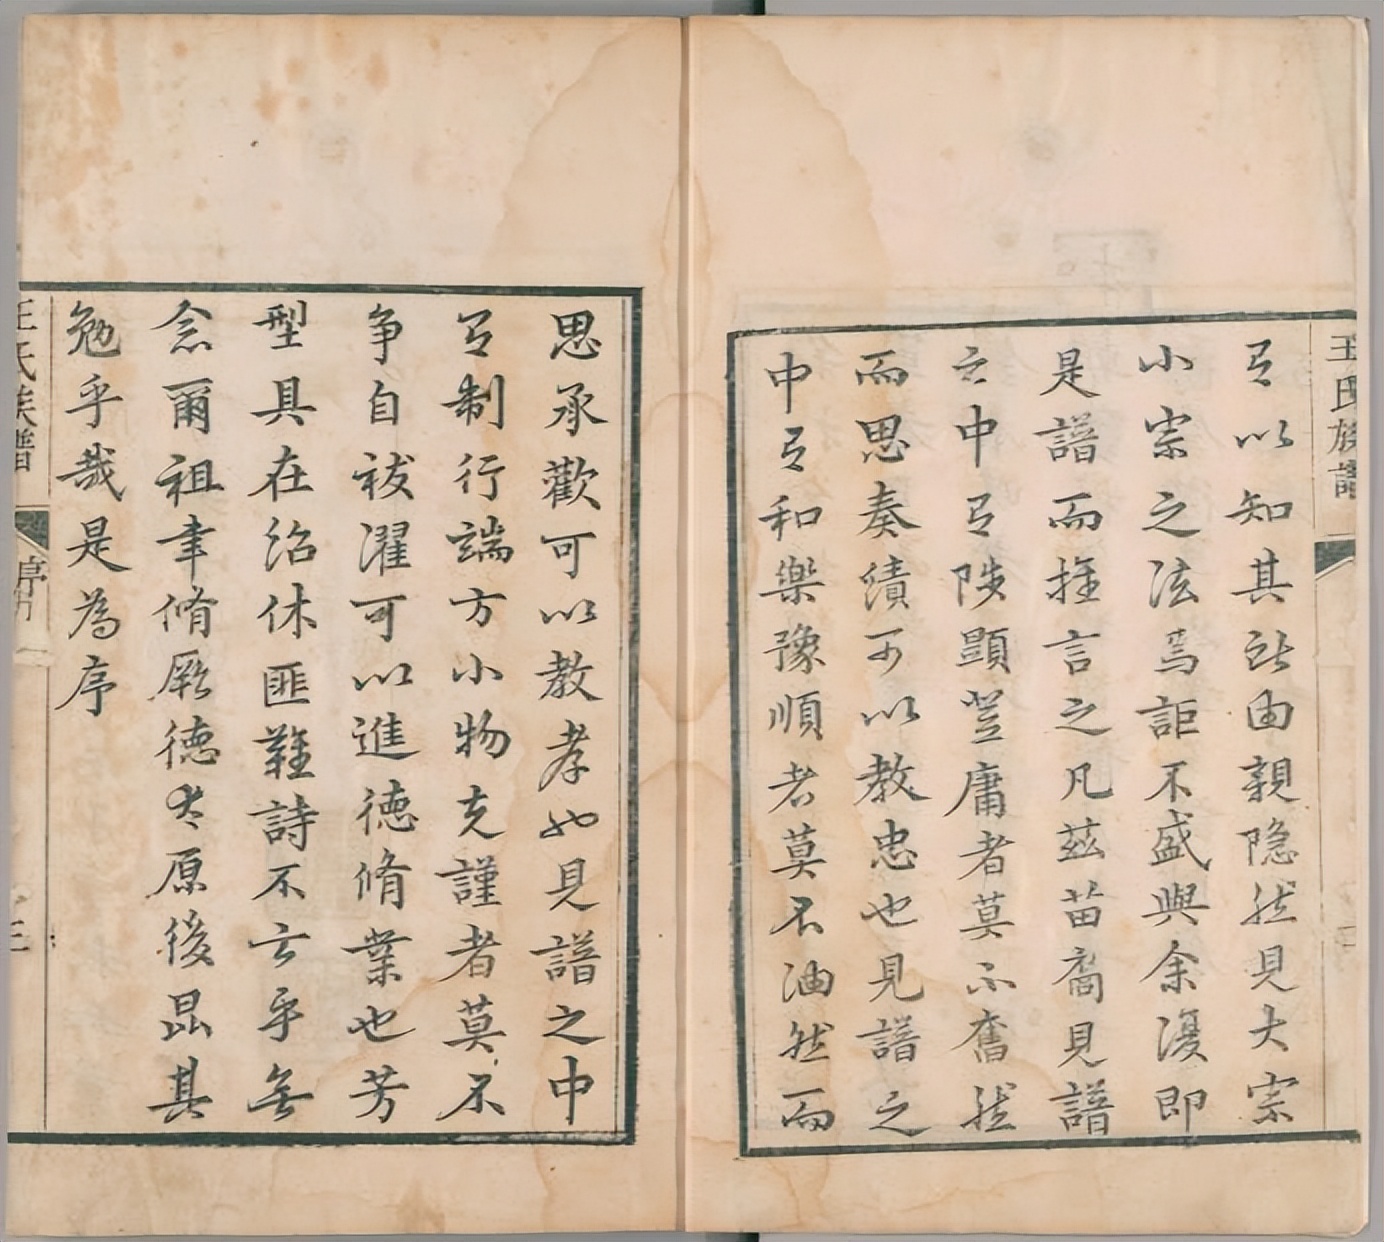 王氏族譜
有以知其所由親隐然見大宗
小宗之法焉詎不盛與余復即
是譜而推言之凡茲苗裔見譜
之中有陟顯登庸者莫不奮然
而思奏績可以教忠也見譜之
中有和樂豫順者莫不油然而
思承歡可以教孝也見譜之中
有制行端方小物克謹者莫不
争自袚濯可以進德脩業也芳
型具在紹休匪難詩不云乎無
念爾祖聿脩厥德太原後昆其
勉乎哉是為序
王氏族譜 序 三